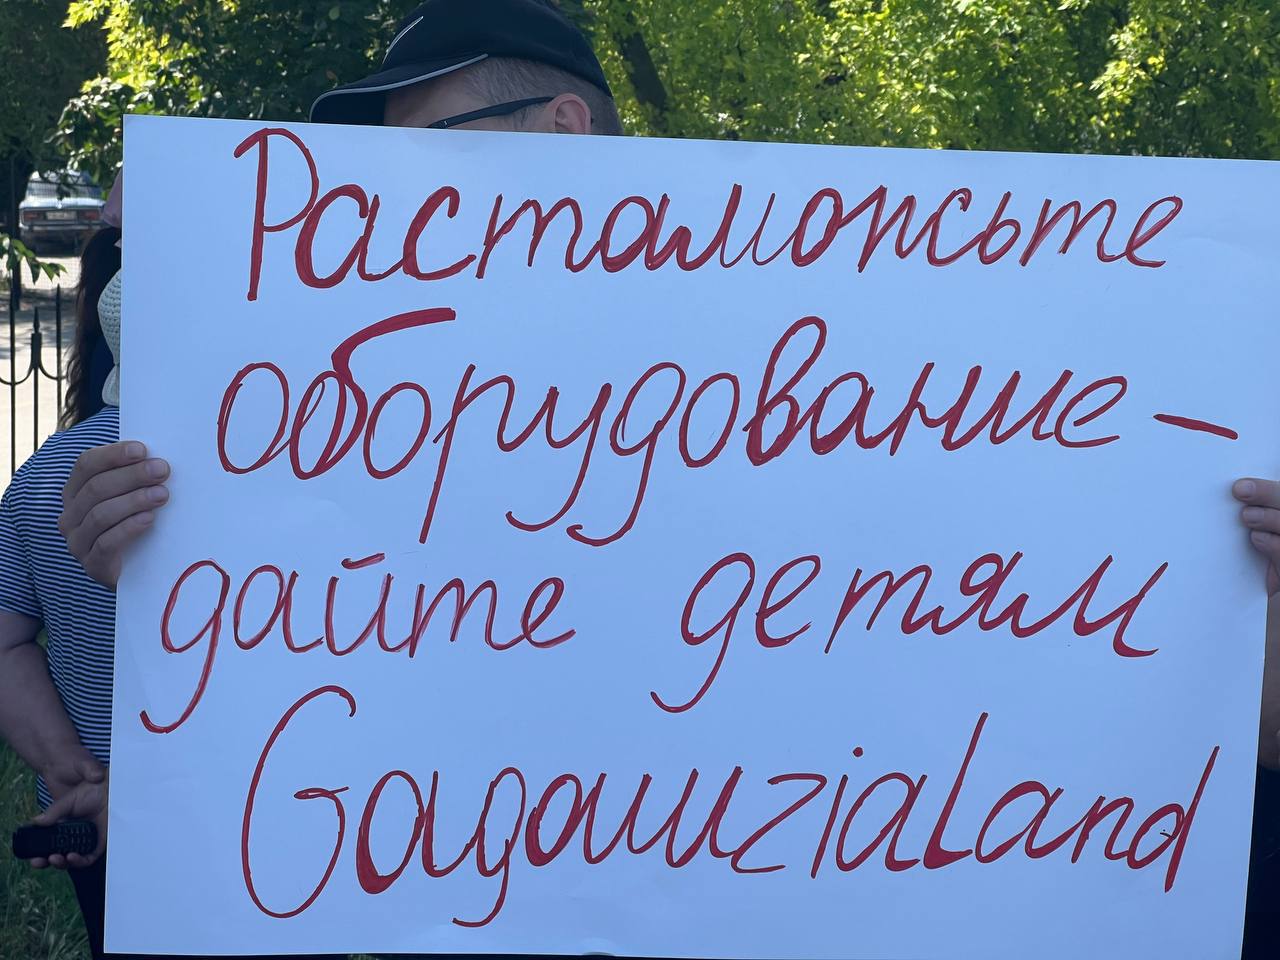 Растаможьте
оборудование -
дайте детям
GagauziaLand